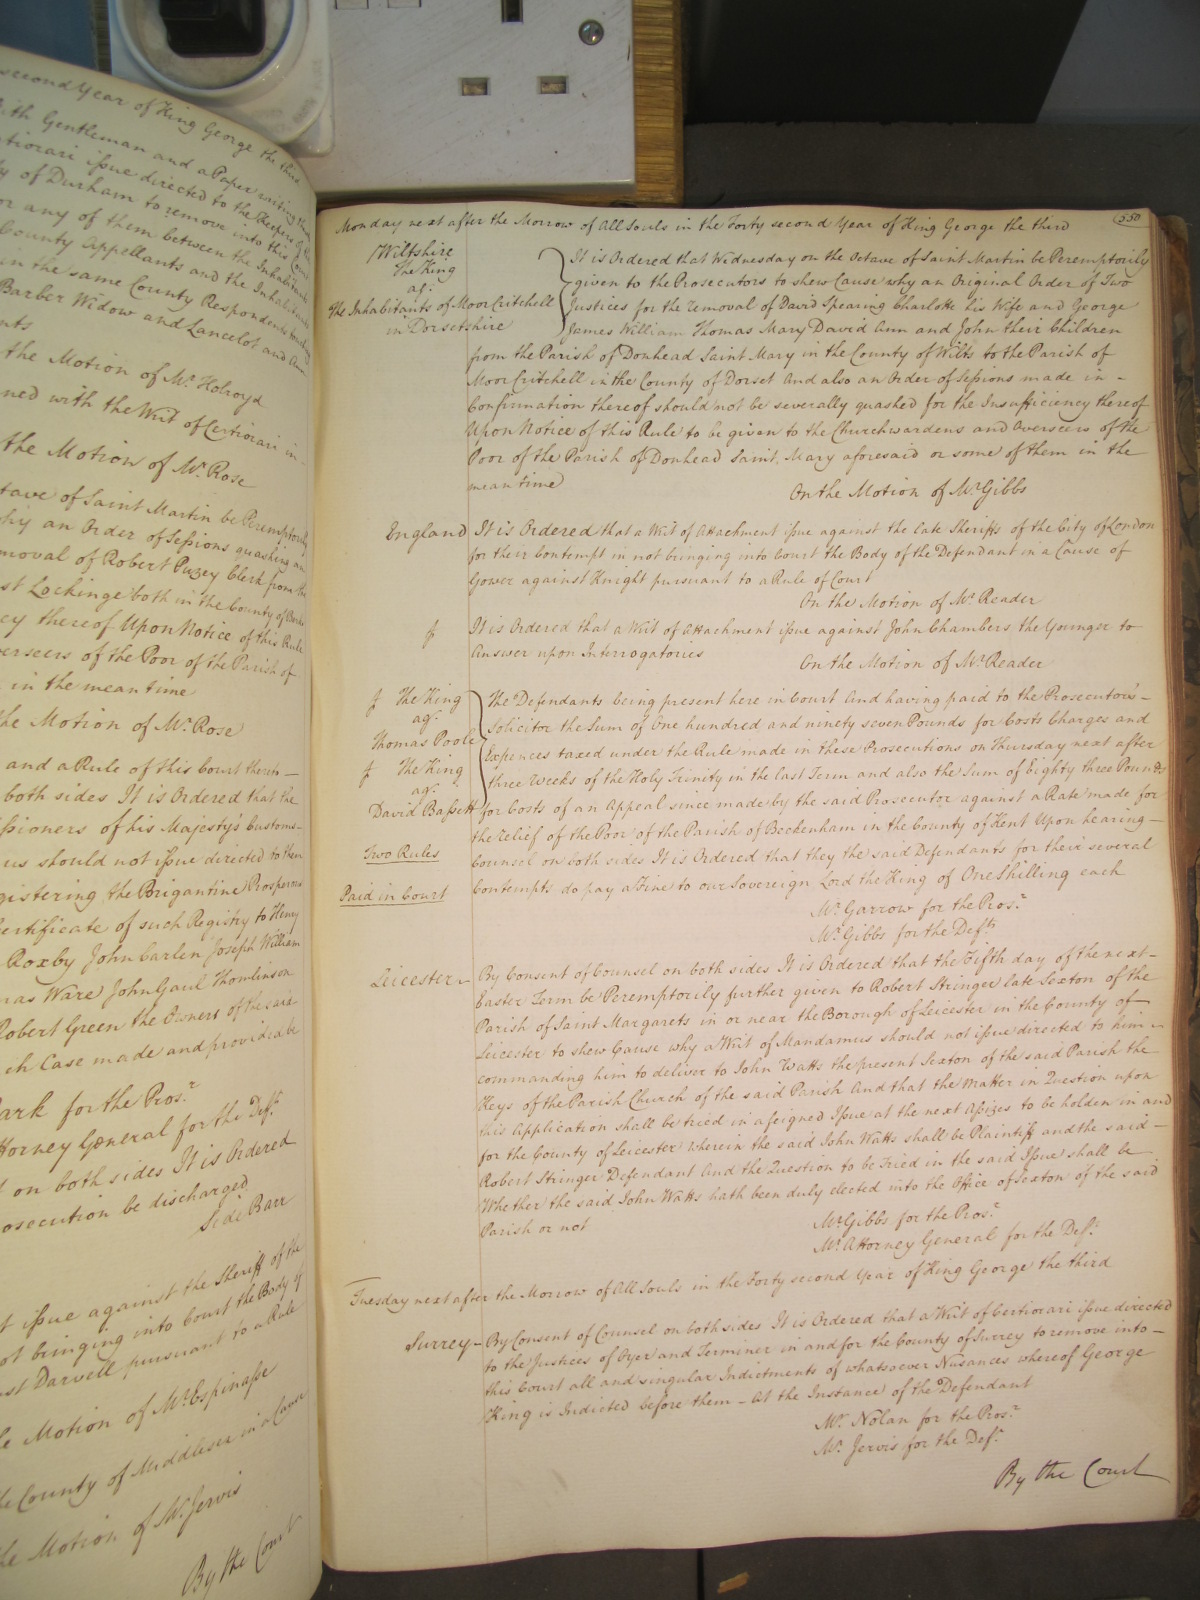 second Year of King George the third
with Gentleman and a Paper writing
Certiorari issue directed to the Keepers of
of Durham to remove into this Court
or any of them between the Inhabitants
County Appellants and the Inhabitants
in the same County Respondents
Barber Widow and Lancelot and Ann
the Motion of Mr. Holroyd
ned with the Writ of Certiorari in
the Motion of Mr. Rose
tave of Saint Martin be Peremptorily
why an Order of Sessions quashing an
moval of Robert Puzey Clerk from the
st Lockinge both in the County of Berks
cy thereof Upon Notice of this Rule
verseers of the Poor of the Parish of
in the mean time
the Motion of Mr. Rose
and a Rule of this Court thereto
both sides It is Ordered that the
ssioners of his Majesty's Customs
us should not issue directed to them
gistering the Brigantine Prosperous
Certificate of such Registry to Henry
Roxby John Carlen Joseph William
mas Ware John Gaul Thomlinson
Robert Green the Owners of the said
ch Case made and provided be
Park for the Pros.r
Attorney General for the Def.t
l on both sides It is Ordered
osecution be discharged
Side Barr
t issue against the Sheriff of the
ot bringing into Court the Body of
st Darvell pursuant to a Rule
he Motion of Mr. Espinasse
the County of Middlesex in a Cause
the Motion of Mr. Jervis
By the Court
550
Monday next after the Morrow of All Souls in the Forty second Year of King George the third
Wiltshire
The King
ag.t
The Inhabitants of Moor Critchell
in Dorsetshire
It is Ordered that Wednesday on the Octave of Saint Martin be Peremptorily
given to the Prosecutors to shew Cause why an Original Order of Two
Justices for the removal of David Spearing Charlotte his Wife and George
James William Thomas Mary David Ann and John their Children
from the Parish of Donhead Saint Mary in the County of Wilts to the Parish of
Moor Critchell in the County of Dorset And also an Order of Sessions made in -
Confirmation thereof should not be severally quashed for the Insufficiency thereof
Upon Notice of this Rule to be given to the Churchwardens and Overseers of the
Poor of the Parish of Donhead Saint Mary aforesaid or some of them in the
mean time
On the Motion of Mr. Gibbs
England It is Ordered that a Writ of Attachment issue against the late Sheriffs of the City of London
for their Contempt in not bringing into Court the Body of the Defendant in a Cause of
Gower against Knight pursuant to a Rule of Court
On the Motion of Mr. Reader
f It is Ordered that a Writ of Attachment issue against John Chambers the Younger to
Answer upon Interrogatories
On the Motion of Mr. Reader
f The King
ag.t
Thomas Poole
f The King
ag.t
David Bassett
Two Rules
Paid in Court
The Defendants being present here in Court And having paid to the Prosecutors -
Solicitor the Sum of One hundred and ninety seven Pounds for Costs Charges and
Expences taxed under the Rule made in these Prosecutions on Thursday next after
three Weeks of the Holy Trinity in the last Term and also the Sum of Eighty three Pounds
for Costs of an Appeal since made by the said Prosecutor against a Rate made for
the relief of the Poor of the Parish of Beckenham in the County of Kent Upon hearing -
Counsel on both sides It is Ordered that they the said Defendants for their several
Contempts do pay a Fine to our Sovereign Lord the King of One Shilling each
Mr. Garrow for the Pros.r
Mr. Gibbs for the Def.ts
Leicester - By Consent of Counsel on both sides It is Ordered that the Fifth day of the next -
Easter Term be Peremptorily further given to Robert Stringer late Sexton of the
Parish of Saint Margarets in or near the Borough of Leicester in the County of
Leicester to shew Cause why a Writ of Mandamus should not issue directed to him -
commanding him to deliver to John Watts the present Sexton of the said Parish the
Keys of the Parish Church of the said Parish And that the Matter in Question upon
this Application shall be tried in a feigned Issue at the next Assizes to be holden in and
for the County of Leicester wherein the said John Watts shall be Plaintiff and the said -
Robert Stringer Defendant And the Question to be Tried in the said Issue shall be
Whether the said John Watts hath been duly elected into the Office of Sexton of the said
Parish or not
Mr. Gibbs for the Pros.r
Mr. Attorney General for the Def.t
Tuesday next after the Morrow of All Souls in the Forty second Year of King George the third
Surrey - By Consent of Counsel on both sides It is Ordered that a Writ of Certiorari issue directed
to the Justices of Oyer and Terminer in and for the County of Surrey to remove into -
this Court all and singular Indictments of whatsoever Nusances whereof George
King is Indicted before them - At the Instance of the Defendant
Mr. Nolan for the Pros.r
Mr. Jervis for the Def.t
By the Court